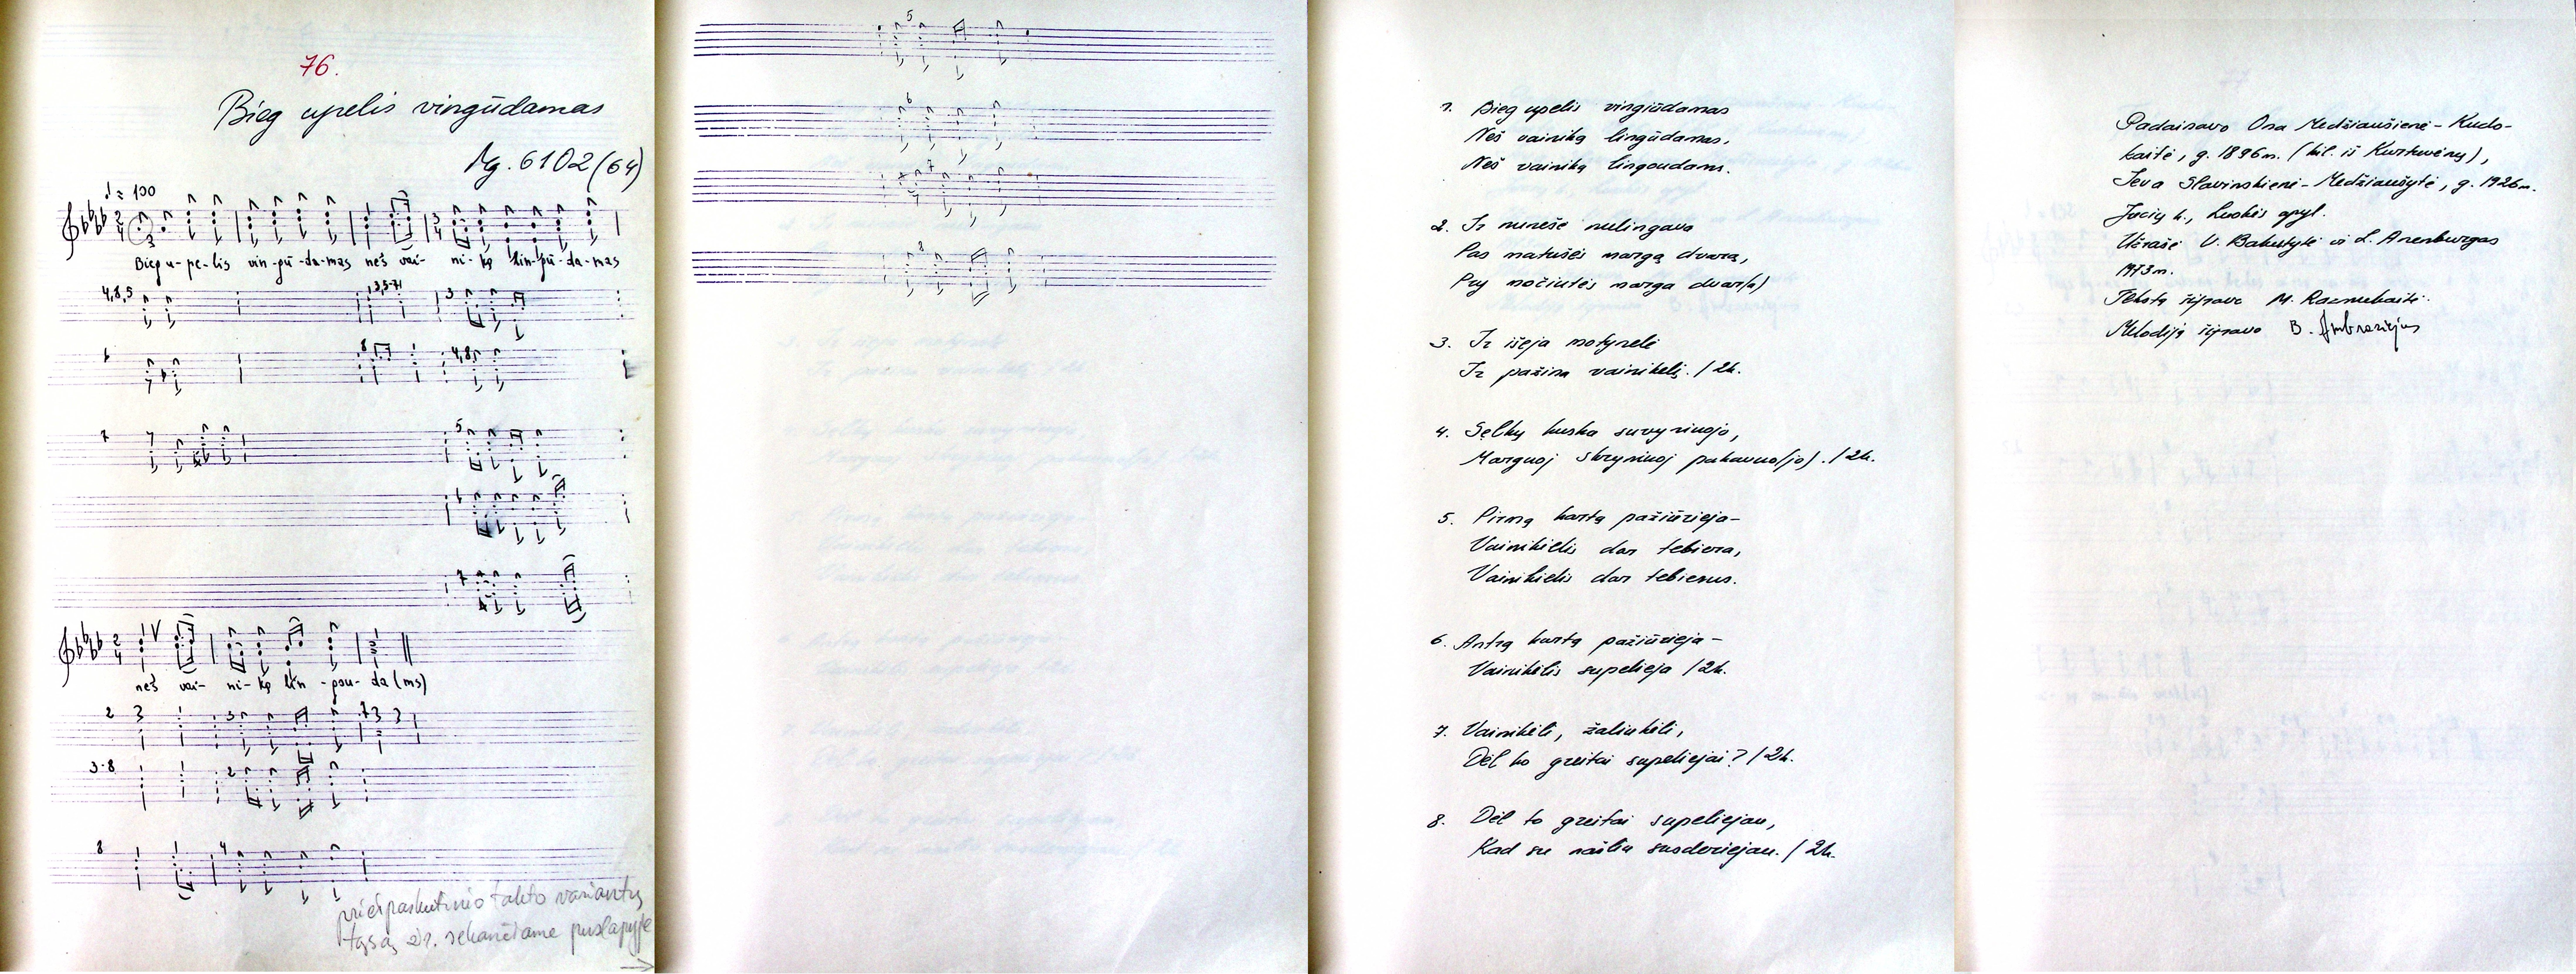 76.
Bieg upelis vingūdamas
Mg. 6102 (64)
♩ = 100
Bieg u-pe-lis vin-gū-da-mas neš vai- ni-ką lin-gū-da-mas
4,8,5
3
6
8
4,8
7
5
6
7
neš vai- ni-ką lin-gou-da(ms)
2
3
3-8
2
8
4
priešpaskutinio takto variantų
tąsą žr. sekančiame puslapyje
5
6
7
8
1. Bieg upelis vingiūdamas
Neš vainiką lingūdamas,
Neš vainiką lingoudams.
2. Ir nuneše nulingava
Pas matušės margą dvarą,
Pry močiutės marga dvar(a)
3. Ir išeja motynelė
Ir pažina vainikelį. / 2k.
4. Šelkų kuska suvyniuojo,
Marguoj skryniuoj pakavuo(jo). / 2k.
5. Pirmą kartą pažiūrieja-
Vainikielis dar tebiera,
Vainikielis dar tebierus.
6. Antrą kartą pažiūrieja-
Vainikėlis supelieja / 2k.
7. Vainikėli, žaliukėli,
Dėl ko greitai supeliejai? / 2k.
8. Dėl to greitai supeliejau,
Kad su našliu susderiejau. / 2k.
Padainavo Ona Medžiaušienė-Kudo-
kaitė, g. 1896m. (kil. iš Kurtuvėnų),
Ieva Slavinskienė-Medžiaušytė, g. 1926m.
Jucių k., Luokės apyl.
Užrašė V. Bakutytė ir L. Arenburgas
1973m.
Tekstą išifravo M. Razmukaitė
Melodiją išifravo B. Ambraziejus